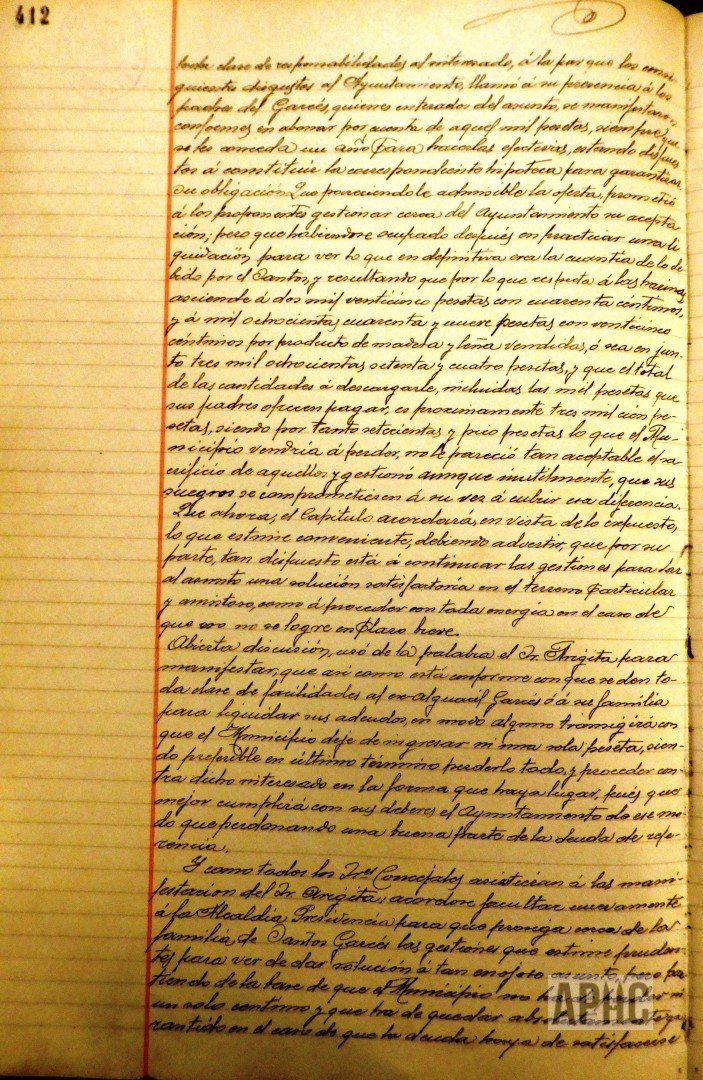 412
toda clase de responsabilidades al interesado, á la par que los consi-
guientes disgustos al Ayuntamiento, llamó á su presencia á los
padres del Garcés, quienes enterados del asunto, se manifestaron
conformes en abonar por cuenta de aquel mil pesetas, siempre que
se les conceda un año para hacerlas efectivas, estando dispues-
tos á constituir la correspondiente hipoteca para garantizar
su obligación. Que pareciendole admisible la oferta, prometió
á los proponentes gestionar cerca del Ayuntamiento su acepta
ción; pero que habiendose ocupado después en practicar una li
quidación para ver lo que en definitiva era la cuantía de lo de-
bido por el Santos, y resultando que por lo que respecta á las harinas
asciende á dos mil venticinco pesetas con cuarenta céntimos,
y á mil ochocientas cuarenta y nueve pesetas con venticinco
céntimos por producto de madera y leña vendidas, ó sea en jun-
to tres mil ochocientas setenta y cuatro pesetas, y que el total
de las cantidades á descargarle, incluidas las mil pesetas que
sus padres ofrecen pagar, es proximamente tres mil cién pe-
setas, siendo por tanto setecientas y pico pesetas lo que el Mu-
nicipio vendría á perder, no le pareció tan aceptable el sa-
crificio de aquellos y gestionó aunque inutilmente, que sus
suegros se comprometiesen á su vez á cubrir esa diferencia.
Que ahora, el Capitulo acordará, en vista de lo expuesto,
lo que estime conveniente, debiendo advertir, que por su
parte, tan dispuesto está á continuar las gestiones para dar
al asunto una solución satisfactoria en el terreno particular
y amistoso, como á proceder con toda energía en el caso de
que eso no se logre en plazo breve.
Abierta discusión, usó de la palabra el Sr. Arigita para
manifestar, que asi como está conforme con que se den to-
da clase de facilidades al ex-alguacil Garcés ó á su familia
para liquidar sus adeudos, en modo alguno transigirá con
que el Municipio deje de ingresar ni una sola peseta, sien-
do preferible en último término perderlo todo, y proceder con-
tra dicho interesado en la forma que haya lugar, pués que
mejor cumplirá con sus deberes el Ayuntamiento de ese mo-
do que perdonando una buena parte de la deuda de refe-
rencia.
Y como todos los Sres Concejales asintieran á las mani-
festacion del Sr. Arigita, acordose facultar nuevamente
á la Alcaldía Presidencia para que prosiga cerca de la
familia de Santos Garcés las gestiones que estime pruden-
tes para ver de dar solución á tan enojoso asunto, pero par
tiendo de la base de que el Municipio no ha de perder ni
un solo centimo y que ha de quedar ga
rantido en el caso de que la deuda haya de satisfacerse
APHC